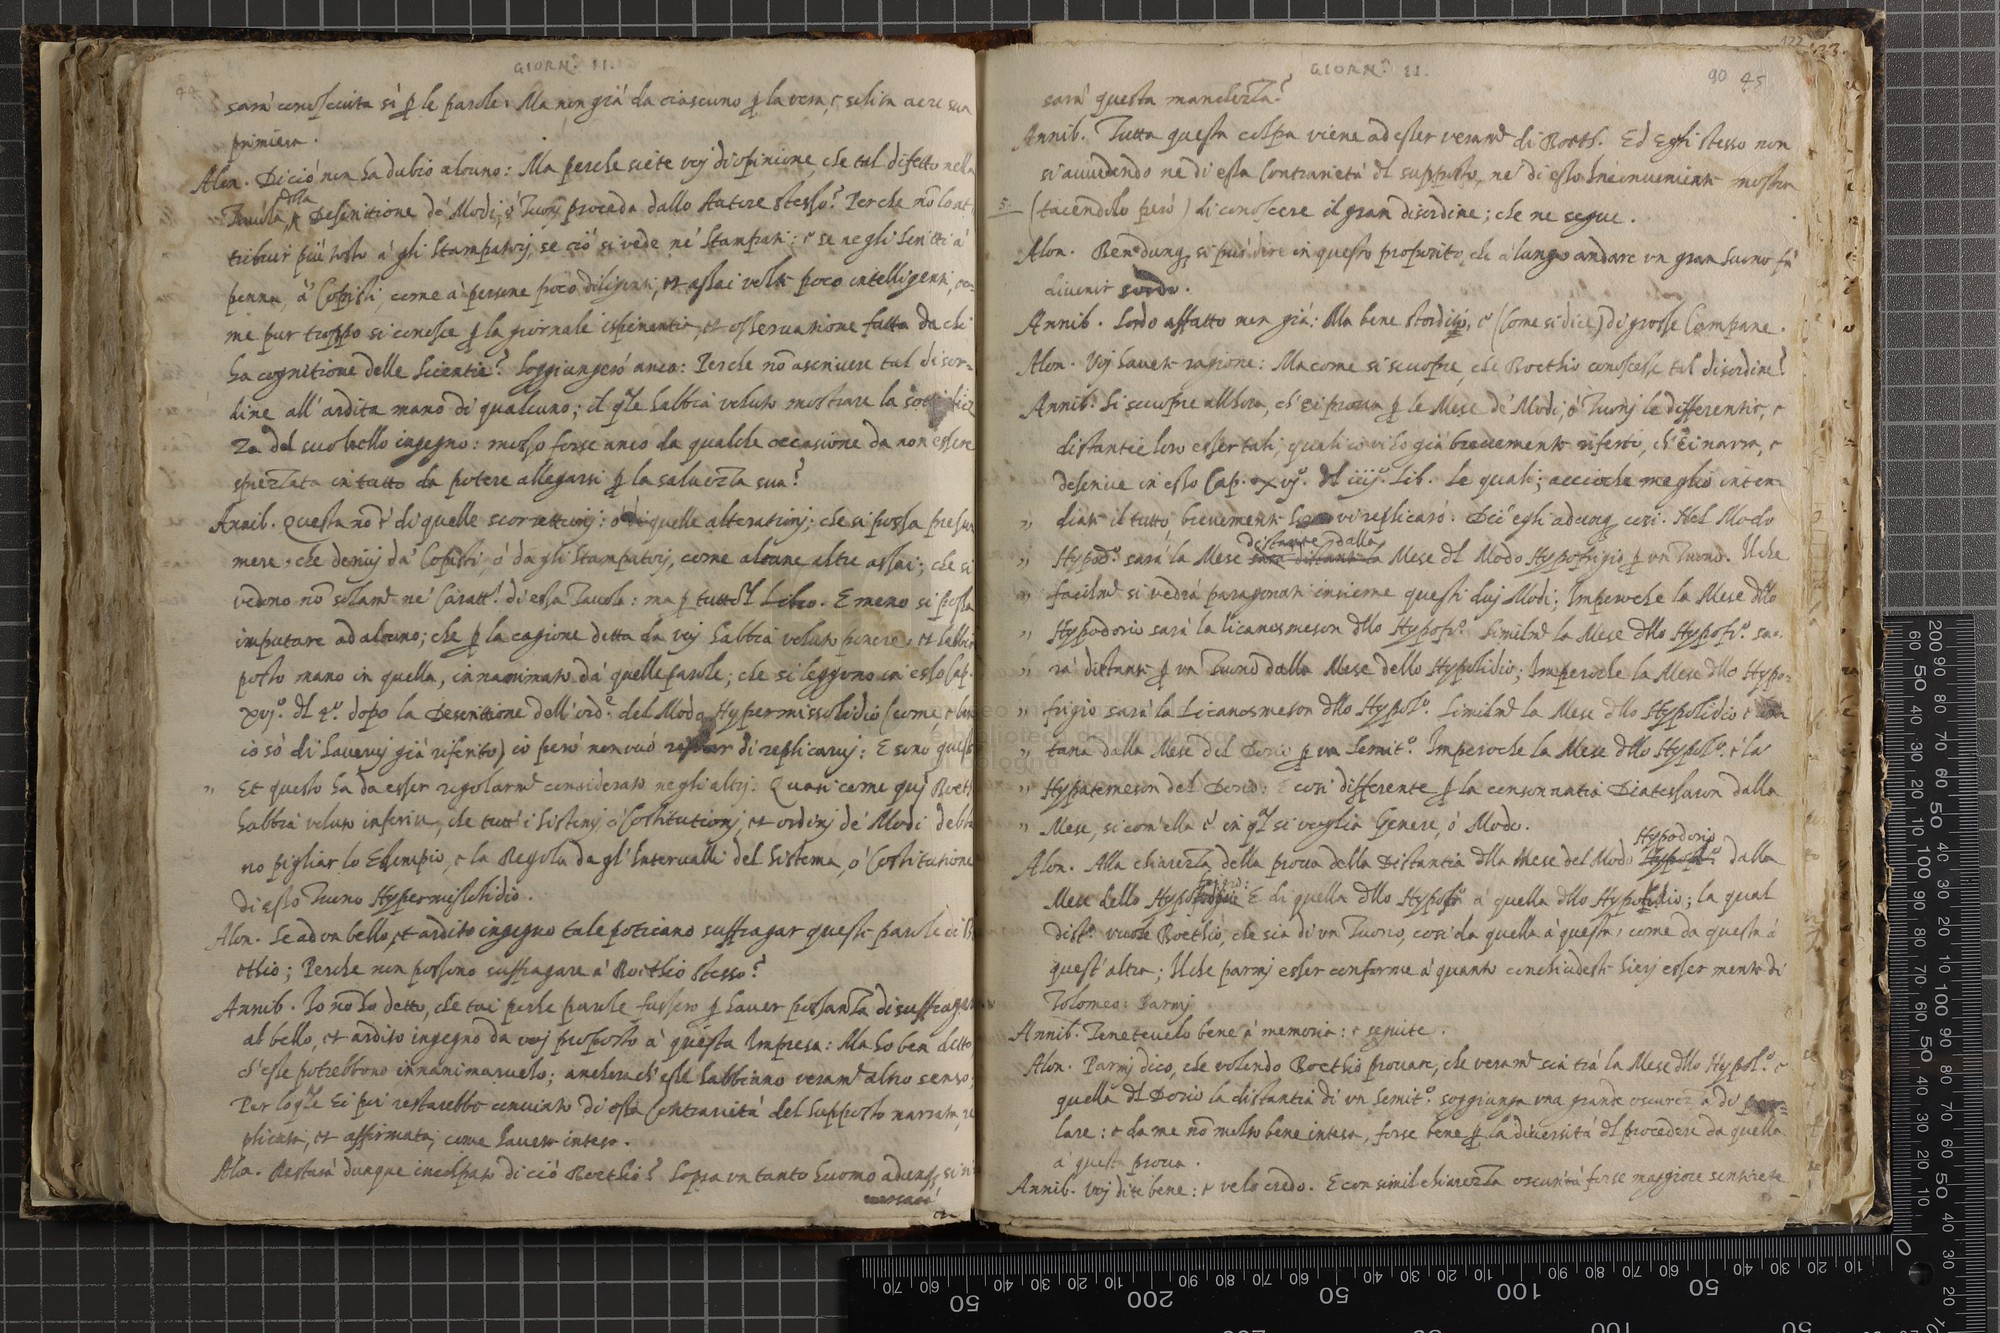 GIORN.ª II.
sarà conosciuta sì p le parole: Ma non già da ciascuno p la vera, e
primiera.
Alon. Di ciò non ha dubio alcuno: Ma perche siete voj di opinione, che tal difetto nella
Tavola, della Descrittione de' Modi, ò Tuonj proceda dallo Autore stesso? Perche nõ lo at
tribuir più tosto à gli Stampatorj, se ciò si vede ne' Stampati: e se negli scritti à
penna, à Copisti, come à persone poco diligenti, et assai volte poco intelligenti, co-
me pur troppo si conosce p la giornale isperientia, et osservatione fatta da chi
ha cognitione delle Scientie? Soggiungerò anco: Perche nõ ascrivere tal disor-
dine all'ardita mano di qualcuno; il qle habbia voluto mostrare la
za del suo bello ingegno: mosso forse anco da qualche occasione da non essere
sprezzata in tutto da potere allegarsi p la salvezza sua?
Annib. Questa nõ è di quelle scorrettionj: ò di quelle alterationj; che si possa presu
mere, che derivj da' Copisti, ò da gli Stampatorj, come alcune altre assai; che si
vedono nõ solamte ne' Caratt.i di essa Tavola: ma p tutto 'l Libro. E meno si possa
imputare ad alcuno; che p la cagione detta da voj habbia voluto porre, et habbia
posto mano in quella, innanimato da quelle parole; che si leggono in esso Cap.
xvj.º dl 4.º dopo la Descrittione dell'ord.e del Modo Hypermissolidio (come e ben
io sò di havervj già riferito) io però non vuò di replicarvj: E sono queste
„ Et questo ha da esser regolarmte considerato negli altrj. Quasi come quj Boeth
habbia voluto inferire, che tutt' i Sistemj, ò Costitutionj, et ordinj de' Modi debba
no pigliar lo Essempio, e la Regola da gl'Intervalli del Sistema, ò Costitutione
di esso Tuono Hypermissolidio.
Alon. Se ad un bello, et ardito ingegno tale poteano suffragar queste parole di B
ethio; Perche non possono suffragare à Boethio stesso?
Annib. Io nõ ho detto, che taj parole fussero p haver possanza di suffragar
al bello, et ardito ingegno da voj proposto à questa Impresa: Ma ho ben detto,
ch'esse potrebbono innanimarvelo; anchorch' esse habbiano veramte altro senso;
Per lo qle Ei poi restarebbe convinto di essa Contrarietà del Supposto narrata, re
plicata, et affirmata, come havete inteso.
Alon. Restarà dunque incolpato di ciò Boethio? Sopra un tanto huomo adunq, si
GIORN.ª II.
122 123.
90 45
sarà questa manchezza?
Annib. Tutta questa colpa viene ad esser veramte di Boeth. Ed Egli stesso non
si avvedendo ne di essa Contrarietà dl supposto, ne di esso Inconveniente mostra
5. (tacendolo però) di conoscere il gran disordine; che ne segue.
Alon. Ben dunq, si può dire in questo proposito, che à lungo andare un gran suono fà
divenir sordo.
Annib. Sordo affatto non già: Ma bene stordito, e (come si dice) di grosse Campane.
Alon. Voj havete ragione: Ma come si scuopre, che Boethio conoscesse tal disordine?
Annib. Si scuopre allhora, ch' Ei prova p le Mese de' Modi, ò Tuonj le differentie, e
distantie loro esser tali; quali io vi ho già brevemente riferto, ch' Ei narra, e
descrive in esso Cap. xvj.º dl iiij.º Lib. Le quali; accioche meglio inten
„ diate il tutto, brevemente vi replicarò. Dic' egli adunq, così. Nel Modo
„ Hypod.º sarà la Mese distante dalla Mese dl Modo Hypofrigio p un Tuono. Il che
„ facilmte si vedrà paragonati insieme questi duj Modi; Imperoche la Mese dllo
„ Hypodorio sarà la licanosmeson dllo Hypofr.º Similmte la Mese dllo Hypofr.º sa-
„ rà distante p un Tuono dalla Mese dello Hypolidio; Imperoche la Mese dllo Hypo-
„ frigio sarà la Licanosmeson dllo Hypol.º Similmte la Mese dllo Hypolidio è
„ tana dalla Mese del Dorio p un Semit.º Imperoche la Mese dllo Hypol.º è la
„ Hypatemeson del Dorio: E così differente p la consonantia Diatessaron dalla
„ Mese, si com' ella è in ql si voglia Genere, ò Modo.
Alon. Alla chiarezza della prova della Distantia dlla Mese del Modo Hypodorio dalla
Mese dello E di quella dllo Hypofr.º à quella dllo Hypolidio; la qual
dist.a vuole Boethio, che sia di un Tuono, così da quella à questa, come da questa à
quest'altra; Il che parmj esser conforme à quanto conchiudeste hierj esser mente di
Tolomeo: Parmj
Annib. Tenetevelo bene à memoria: e seguite.
Alon. Parmj dico, che volendo Boethio provare, che veramte sia trà la Mese dllo Hypol.º e
quella dl Dorio la distantia di un Semit.º soggiunga una grande oscurezza di par-
lare: e da me nõ molto bene intesa, forse bene p la diversità dl procedere da quella
à questa prova.
Annib. Voj dite bene: e ve lo credo. E con simil chiarezza oscurità forse maggiore sentirete